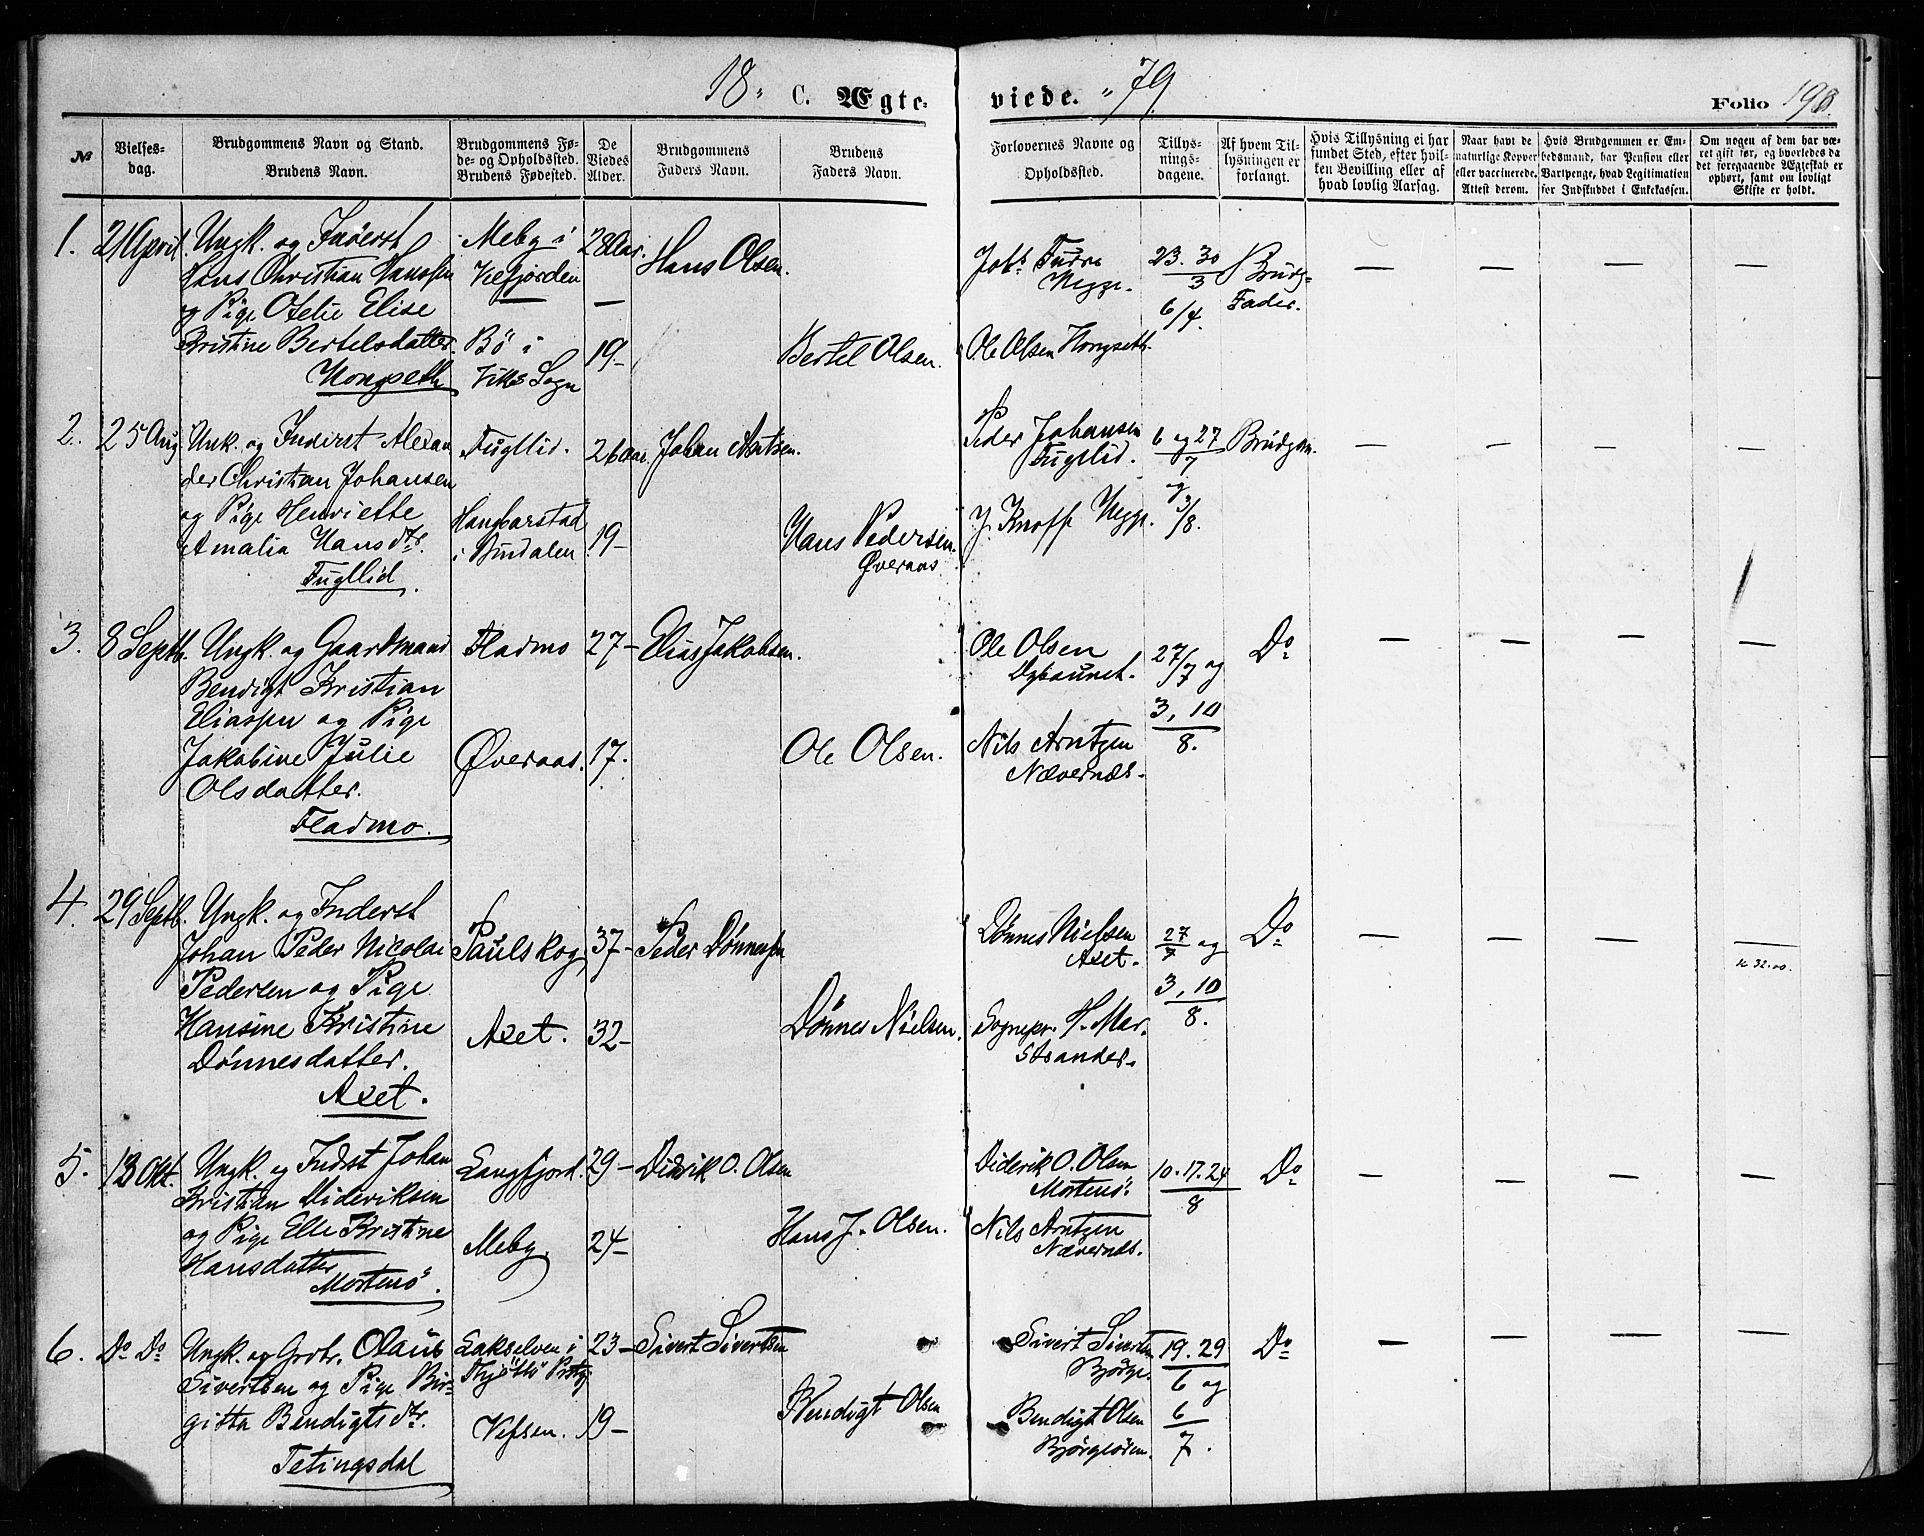 18 " C. Ægte- viede. " 79.
Folio 198.
№
Vielses-
dag.
Brudgommens Navn og Stand.
Brudens Navn.
Brudgommens Fø-
de- og Opholdssted.
Brudens Fødested.
De
Viedes
Alder.
Brudgommens
Faders Navn.
Brudens
Faders Navn.
Forlovernes Navne og
Opholdssted.
Tillys-
nings-
dagene.
Af hvem Til-
lysningen er
forlangt.
Hvis Tillysning ei har
fundet Sted, efter hvil-
ken Bevilling eller af
hvad lovlig Aarsag.
Naar havt de
naturlige Kopper
eller vaccinerede.
Attest derom.
Hvis Brudgommen er Em-
bedsmand, har Pension eller
Vartpenge, hvad Legitimation
for Indskuddet i Enkekassen.
Om nogen af dem har væ-
ret gift før, og hvorledes da
det foregaaende Ægteskab er
ophørt, samt om lovligt
Skifte er holdt.
1. 21 April. Ungk. og Inderst
Hans Christian Hanssen
og Pige Otelie Elise
Kristine Bertelsdatter.
Hongseth
Meby i
Velfjorden
Bö i
Viks Sogn
28 Aar.
19 -
Hans Olsen.
Bertel Olsen.
Ole Olsen Hongseth.
23. 30
3
6/4.
Brudg-
Fader.
2. 25 Aug. Unk. og Inderst Alexan
der Christian Johansen
og Pige Henriette
Amalia Hansdtr.
Fugllid.
Fugllid.
i Bindalen
26 Aar.
19 -
Johan Arntsen.
Hans Pedersen
Øveraas
Peder Johansen
Fugllid.
J. Knoff
6 og 27
7
og
3/8.
Brudgom.
3. 8 Septb. Ungk. og Gaardmand
Bendigt Kristian
Eliassen og Pige
Jakobine Julie
Olsdatter.
Fladmo.
Fladmo
Øveraas.
27 -
17.
Elias Jakobsen.
Ole Olsen.
Ole Olsen
Dybaunet.
Nils Arntzen
Nævernæs.
27/7 og
3, 10
8.
Do
4. 29 Septb. Ungk. og Inderst
Johan Peder Nicolai
Pedersen og Pige
Hansine Kristine
Dönnesdatter.
Axet.
Paulskog
Axet.
37 -
32 -
Peder Dönnessen
Dönnes Nielsen.
Dönnes Nielsen
Axet.
Sognepr. H. Mar-
strander.
27
7 og
3, 10
8.
Do
5. 13 Okt. Ungk. og Inderst Johan
Kristian Dideriksen
og Pige Elle Kristine
Hansdatter
Mortensö.
Langfjord.
Meby.
29 -
24 -
Didrik O. Olsen
Hans J. Olsen.
Diderik O. Olsen
Mortensö.
Nils Arntzen
Nævernæs.
10. 17. 24
8
Do
6. Do Do Ungk. og Grbr. Olaus
Sivertsen og Pige Bir-
gitta Bendigtsdtr.
Tetingsdal
Lakselven i
Thjöttö Prstgj
Vefsen.
23 -
19 -
Sivert Sivertsen
Bendigt Olsen
Sivert Sivertsen
Bendigt Olsen
19. 29
6 og
6
7.
Do